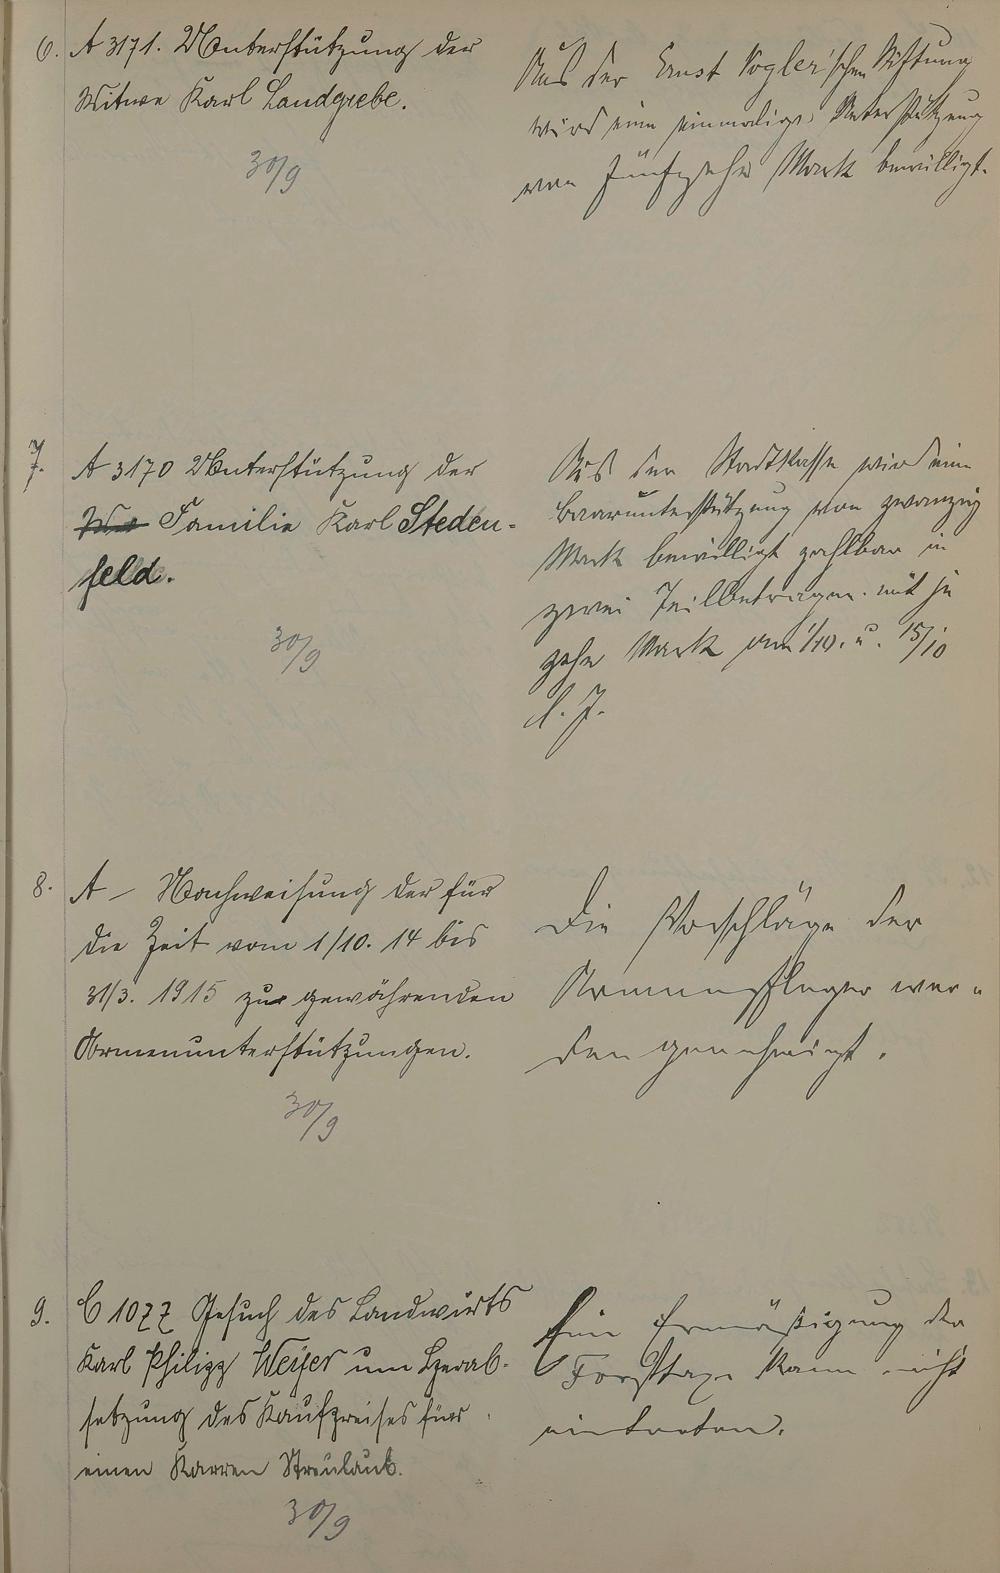 6. A 3171. Unterstützung der
Witwe Karl Landgrebe.
30/9
Aus der Ernst Vogler'schen Stiftung
wird eine einmalige Unterstützung
von fünfzehn Mark bewilligt.
7. A 3170 Unterstützung der
Familie Karl Steden-
feld.
30/9
Aus der Stadtkasse wird eine
Baarunterstützung von zwanzig
Mark bewilligt zahlbar in
zwei Teilbetragen mit je
zehn Mark am 1/10. u. 15/10
l. J.
8. A – Nachweisung der für
die Zeit vom 1/10. 14 bis
31/3. 1915 zu gewährenden
Armenunterstützungen.
30/9
Die Vorschläge der
Armenpfleger wer-
den genehmigt.
9. C 1077 Gesuch des Landwirts
Karl Philipp Weyer um Herab-
setzung des Kaufpreises für
einen Karren Streulaub.
30/9
Eine Ermäßigung der
Forsttaxe kann nicht
eintreten.